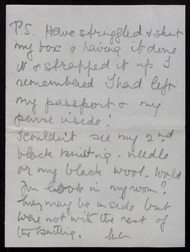 P.S. Have struggled & shut
my box & having it done
it & strapped it up I
remembered I had left
my passport & my
purse inside!
I couldn't see my 2nd
black knitting - needle
or my black wool. Would
you look in my room?
They may be inside but
were not with the rest of
the knitting.